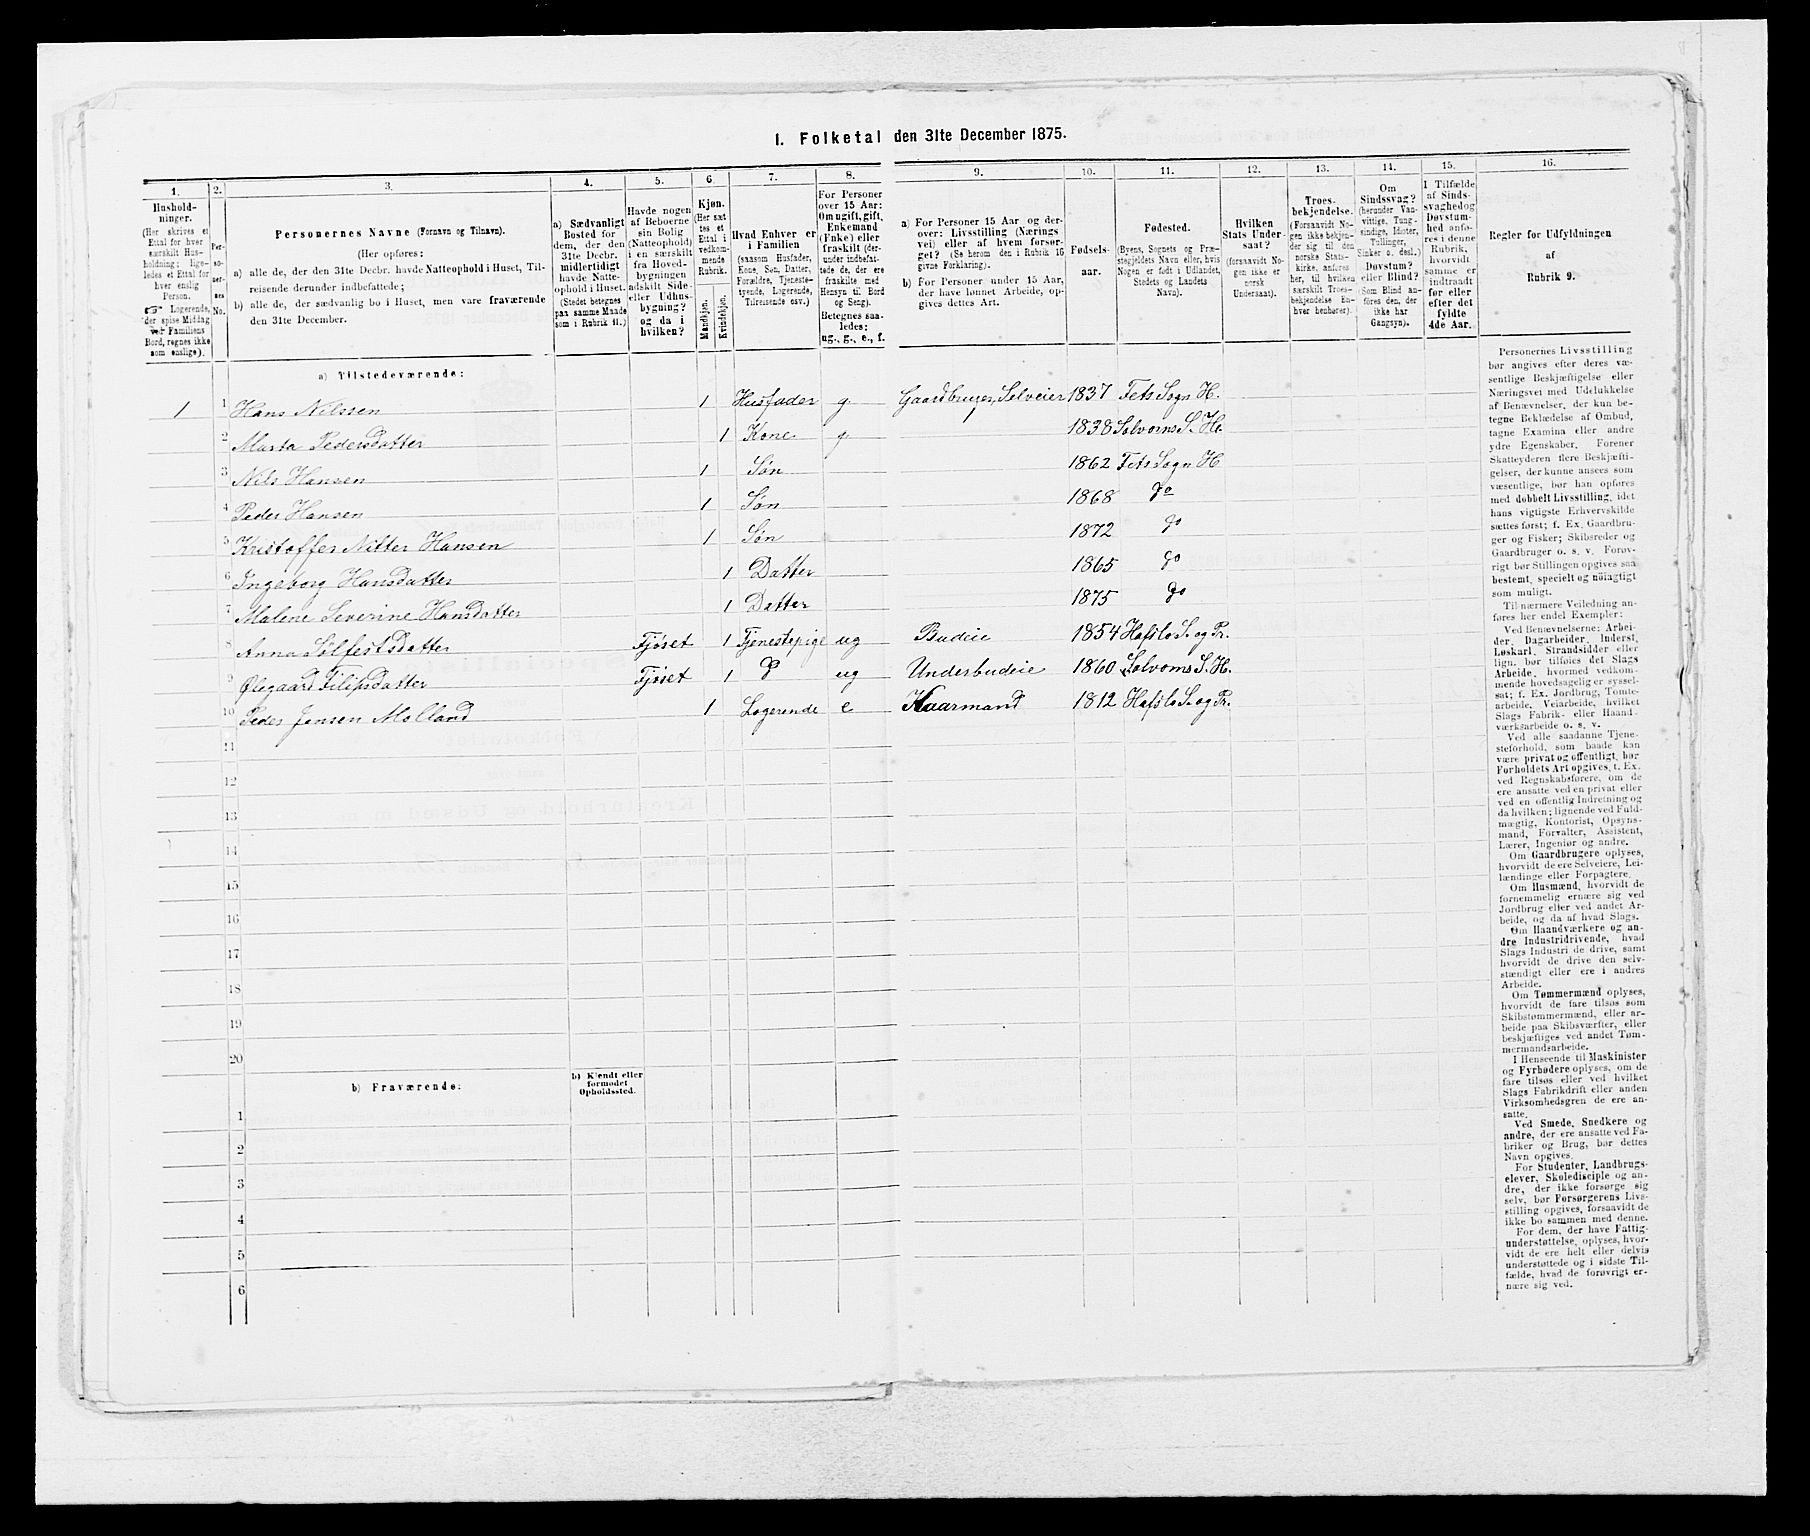 I. Folketal den 31te December 1875.
1. 2. 3. 4. 5. 6. 7. 8. 9. 10. 11. 12. 13. 14. 15. 16.
Hushold-
ninger.
(Her skrives et
Ettal for hver
særskilt Hus-
holdning; lige-
ledes et Ettal for
hver enslig
Person.
☞ Logerende,
der spise Middag
ved Familiens
Bord, regnes ikke
som enslige).
Per-
so-
ner-
nes
No.
Personernes Navne (Fornavn og Tilnavn).
(Her opføres:
a) alle de, der den 31te Decbr. havde Natteophold i Huset, Til-
reisende derunder indbefattede;
b) alle de, der sædvanlig bo i Huset, men vare fraværende
den 31te December.
a) Sædvanligt
Bosted for
dem, der den
31te Decbr.
midlertidigt
havde Natte-
ophold i Huset.
(Stedet betegnes
paa samme Maade
som i Rubrik 11.)
Havde nogen
af Beboerne
sin Bolig
(Natteophold)
i en særskilt
fra Hoved-
bygningen
adskilt Side-
eller Udhus-
bygning?
og da i
hvilken?
Kjøn.
(Her sæt-
tes et
Ettal i
vedkom-
mende
Rubrik.
Mandkjøn.
Kvindekjøn.
Hvad Enhver er
i Familien
(saasom Husfader,
Kone, Søn, Datter,
Forældre, Tjeneste-
tyende, Logerende,
Tilreisende osv.)
For Personer
over 15 Aar:
Om ugift, gift,
Enkemand
(Enke) eller
fraskilt (der-
under indbefat-
tede de, der ere
fraskilte med
Hensyn til Bord
og Seng).
Betegnes saa-
ledes:
ug., g., e., f.
a) For Personer 15 Aar og der-
over: Livsstilling (Nærings
vei) eller af hvem forsør-
get? (Se herom den i Rubrik 16
givne Forklaring).
b) For Personer under 15 Aar,
der have lønnet Arbeide, op-
gives dettes Art.
Fødsels-
aar.
Fødested.
(Byens, Sognets og Præ-
stegjeldets Navn eller, hvis
Nogen er født i Udlandet,
Stedets og Landets
Navn).
Hvilken
Stats Under-
saat?
(forsaavidt No-
gen ikke er
norsk
Undersaat).
Troes-
bekjendelse.
(Forsaavidt No-
gen ikke bekjen-
der sig til den
norske Stats-
kirke, anføres
her, til hvilken
særskilt Troes-
bekjendelse En-
hver henhører).
Om
Sindssvag?
(herunder Van-
vittige, Tung-
sindige, Idioter,
Tullinger,
Sinker o. desl.)
Døvstum?
eller Blind?
(Som Blind an-
føres den, der
ikke har
Gangsyn).
I Tilfælde
af Sinds-
svaghed og
Døvstum-
hed anfø-
res i denne
Rubrik,
hvorvidt
samme er
indtraadt
før eller
efter det
fyldte
4de Aar.
Regler for Udfyldningen
af
Rubrik 9.
a) Tilstedeværende:
1 1 Hans Nilssen 1 Husfader g. Gaardbruger, Selveier 1837 Fets Sogn H.
2 Marta Pedersdatter 1 Kone g. 1838 Solvorns S. H.
3 Nils Hansen 1 Søn 1862 Fets Sogn H
4 Peder Hansen 1 Søn 1868 do
5 Kristoffer Nitter Hansen 1 Søn 1872 do
6 Ingeborg Hansdatter 1 Datter 1865 do
7 Malene Severine Hansdatter 1 Datter 1875 do
8 Anna Sølfestsdatter Fjøset 1 Tjenestepige ug Budeie 1854 Hafslo S. og Pr.
9 Ølegaard Filipsdatter Fjøset 1 do ug Underbudeie 1860 Solvorns S. H.
10 Peder Jensen Molland 1 Logerende e Kaarmand 1812 Hafslo S. og Pr.
11
12
13
14
15
16
17
18
19
20
b) Fraværende:
b) Kjendt eller
formodet
Opholdssted.
1
2
3
4
5
6
Personernes Livsstilling
bør angives efter deres væ-
sentlige Beskjæftigelse eller
Næringsvei med Udelukkelse
af Benævnelser, der kun be-
tegne Beklædelse af Ombud,
tagne Examina eller andre
ydre Egenskaber. Forener
Skatteyderen flere Beskjæfti-
gelser, der kunne ansees som
væsentlige, bør han opføres
med dobbelt Livsstilling, idet
hans vigtigste Erhvervskilde
sættes først; f. Ex. Gaardbru-
ger og Fisker; Skibsreder og
Gaardbruger o. s. v. Forøv-
rigt bør Stillingen opgives saa
bestemt, specielt og nøiagtigt
som muligt.
Til nærmere Veiledning an-
føres her endel Exempler:
Ved Benævnelserne: Arbei-
der, Dagarbeider, Inderst,
Løskarl, Strandsidder eller
lign. bør tilføies det Slags
Arbeide, hvormed vedkom-
mende hovedsagelig er syssel-
sat; f. Ex. Jordbrug, Tomte-
arbeide, Veiarbeide, hvilket
Slags Fabrik- eller Haand-
værksarbeide o. s. v.
Ved alle saadanne Tjene-
steforhold, som baade kan
være privat og offentligt, bør
Forholdets Art opgives, t. Ex.
ved Regnskabsførere, om de
ere ansatte ved en privat eller
ved en offentlig Indretning og
da hvilken; lignende ved Fuld-
mægtig, Kontorist, Opsyns-
mand, Forvalter, Assistent,
Lærer, Ingeniør og andre.
Om Gaardbrugere oplyses,
hvorvidt de ere Selveiere, Lei-
lændinge eller Forpagtere.
Om Husmænd, hvorvidt de
fornemmelig ernære sig ved
Jordbrug eller ved andet Ar-
beide, og da af hvad Slags.
Om Haandværkere og an-
dre Industridrivende, hvad
Slags Industri de drive, samt
hvorvidt de drive den selv-
stændigt eller ere i andres
Arbeide.
Om Tømmermænd oplyses,
hvorvidt de fare tilsøs som
Skibstømmermænd, eller ar-
beide paa Skibsværfter, eller
beskjæftiges ved andet Tøm-
mermandsarbeide.
I Henseende til Maskinister
og Fyrbødere oplyses, om de
fare tilsøs eller ved hvilket
Slags Fabrikdrift eller anden
Virksomhedsgren de ere an-
satte.
Ved Smede, Snedkere og
andre, der ere ansatte ved Fa-
briker og Brug, bør dettes
Navn opgives.
For Studenter, Landbrugs-
elever, Skoledisciple og an-
dre, der ikke forsørge sig
selv, bør Forsørgerens Livs-
stilling opgives, forsaavidt de
ikke bo sammen med denne.
For dem, der have Fattig-
understøttelse, oplyses, hvor-
vidt de ere helt eller delvis
understøttede og i sidste Til-
fælde, hvad de forøvrigt er-
nære sig ved.